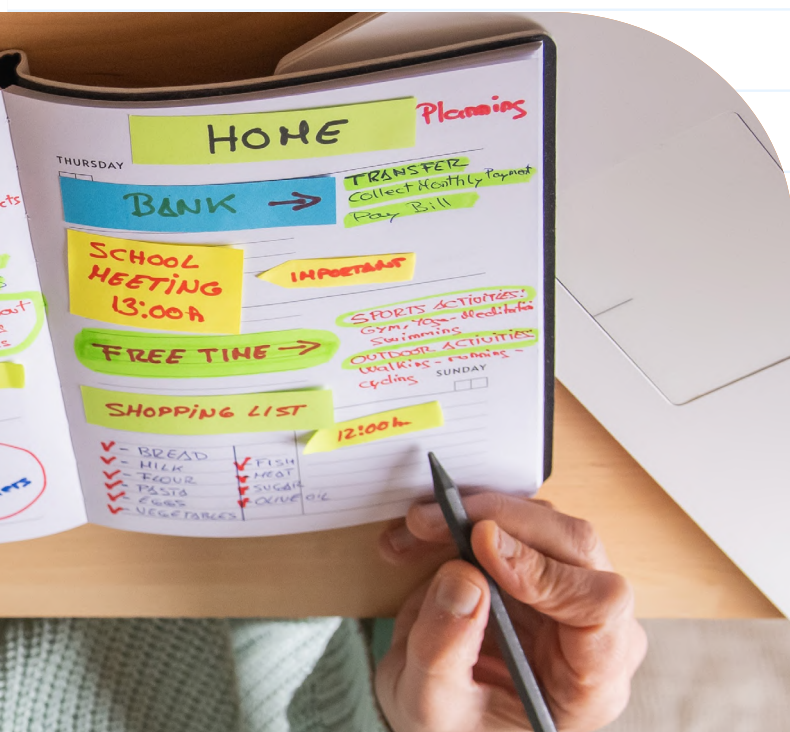 HOME
Planning
THURSDAY
BANK →
TRANSFER
Collect Monthly Payment
Pay Bill
SCHOOL
MEETING
13:00h
IMPORTANT
FREE TIME →
SPORTS ACTIVITIES:
Gym, Yoga-Meditation
Swimming
OUTDOOR ACTIVITIES
Walking - running -
cycling
SUNDAY
SHOPPING LIST
12:00h.
- BREAD
- MILK
- FLOUR
- PASTA
- EGGS
- VEGETABLES
- FISH
- MEAT
- SUGAR
- OLIVE OIL